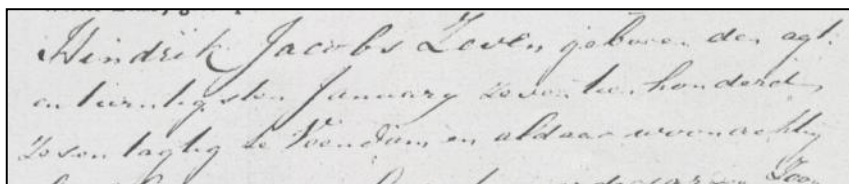 Hindrik Jacobs Zeven geboren den agt
en twentigsten January zeventienhonderd
zesentagtig te Veendam en aldaar woonachtig
Zoon